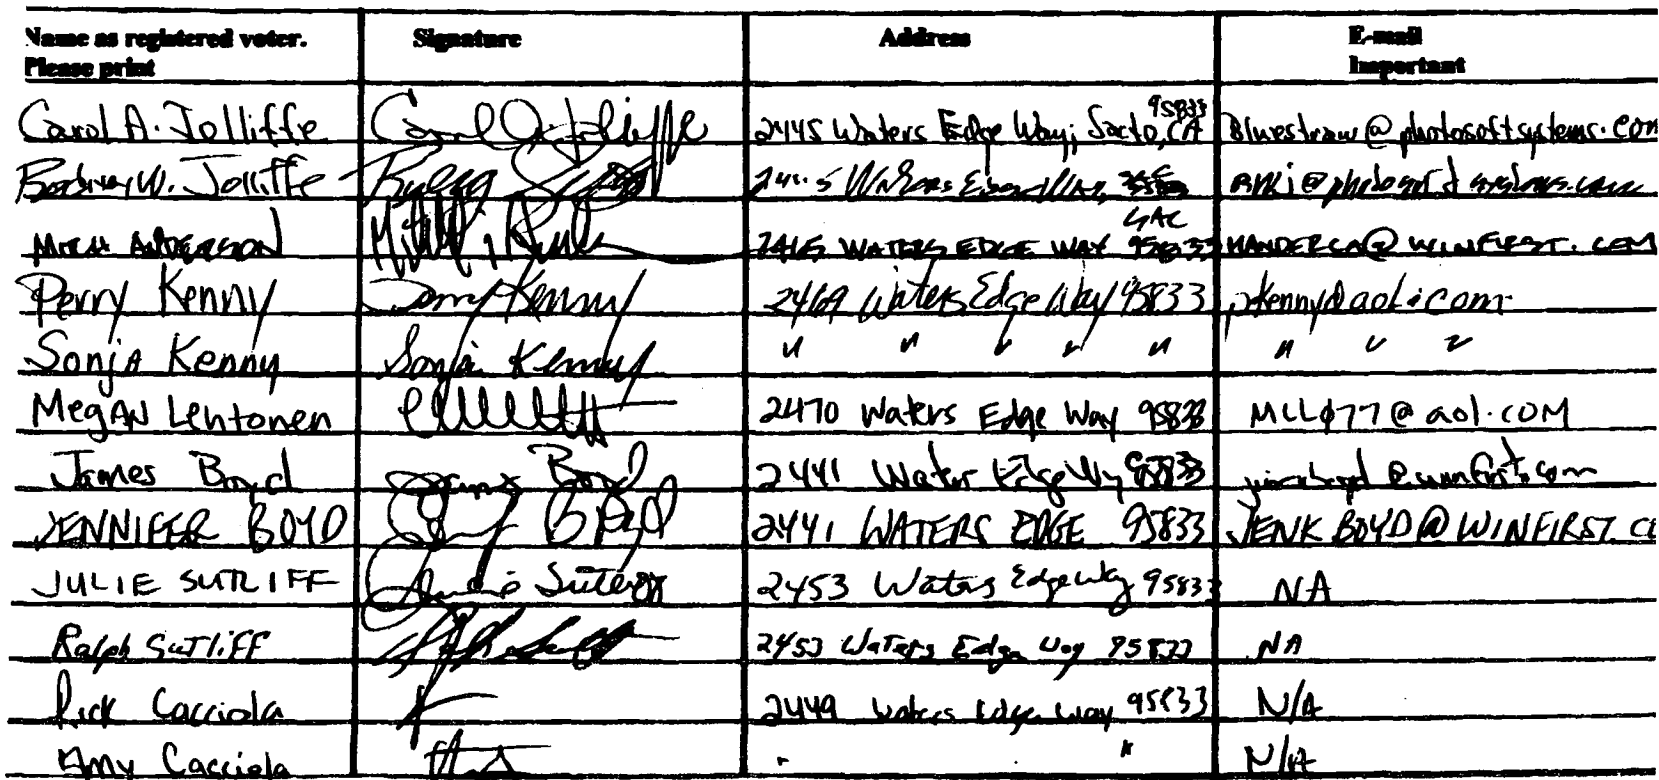 Name as registered voter. Signature Address E-mail
Please print Important
Carol A. Jolliffe Carol A. Jolliffe 2445 Waters Edge Way, Sacto, CA 95833 Bluestraw@photosoftsystems.com
Rodney W. Jolliffe
MITCH ANDERSON 2465 WATERS EDGE WAY SAC 95833 MANDERCA@WINFIRST.COM
Perry Kenny Perry Kenny 2469 Waters Edge Way 95833 pkenny@aol.com
Sonja Kenny Sonja Kenny " " " " " " " "
MegAN Lehtonen 2470 Waters Edge Way 95833 MLLϕ77@aol.com
James Boyd James Boyd 2441 Water Edge Wy 95833
JENNIFER BOYD Boyd 2441 WATERS EDGE 95833 JENKBOYD@WINFIRST.CO
JULIE SUTLIFF Julie 2453 Waters Edge Way 95833 NA
Ralph SUTLIFF 2453 Waters Edge Way 95833 NA
Rick Cacciola 2449 Waters Edge Way 95833 N/A
Amy Cacciola " " N/A